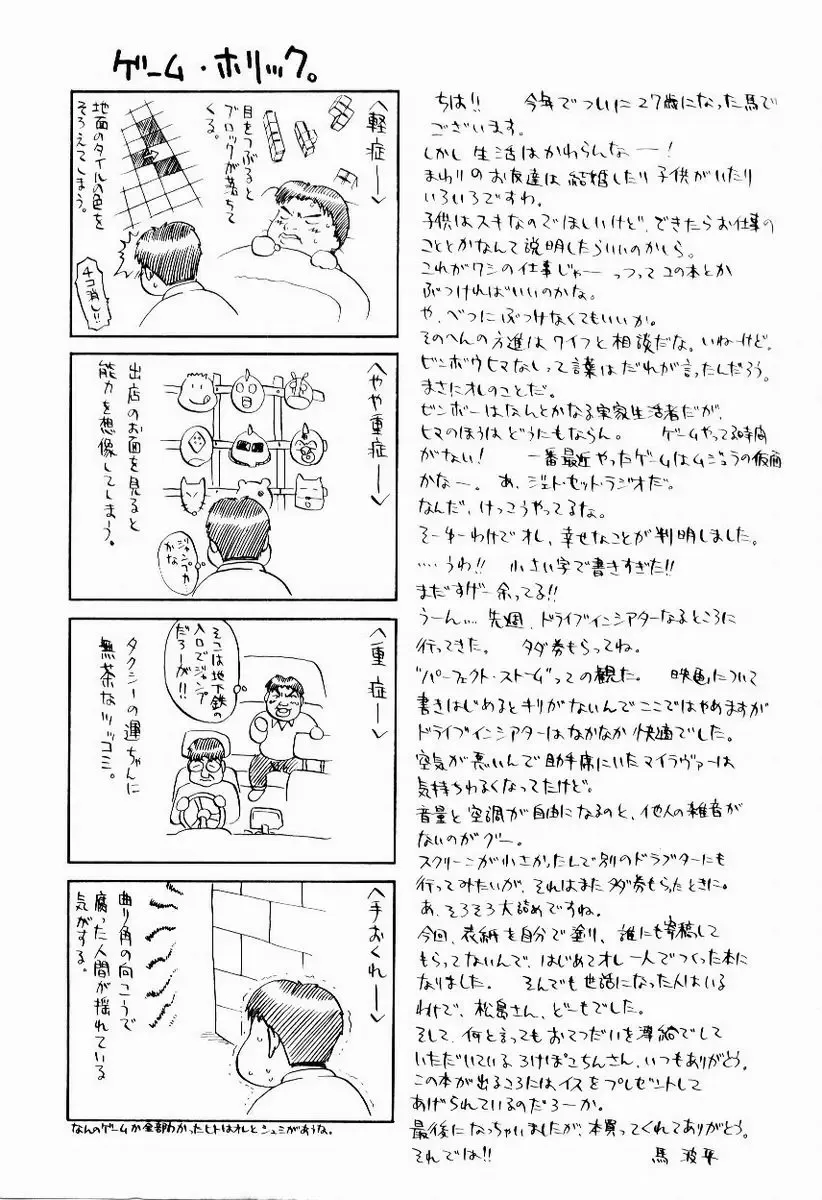 ゲーム・ホリック。
〈軽症ー〉
目をつぶると
ブロックが落ちて
くる。
地面のタイルの色を
そろえてしまう。
チコ消し!!
〈やや重症ー〉
出店のお面を見ると
能力を想像してしまう。
ジャンプカ
かな
〈重症ー〉
そこは地下鉄の
入口でジャンプ
だろーが!!
タクシーの運ちゃんに
無茶なツッコミ。
〈手おくれー〉
曲り角の向こうで
腐った人間が揺れている
気がする。
なんのゲームか全部わかったヒトはオレとシュミがあうな。
ちは!! 今年でついに27歳になった馬で
ございます。
しかし生活はかわらんなー!
まわりのお友達は結婚したり子供がいたり
いろいろですわ。
子供はスキなのでほしいけど、できたらお仕事の
こととかなんて説明したらいいのかしら。
これがワシの仕事じゃーっつってコの本とか
ぶつければいいのかな。
や、べつにぶつけなくてもいいか。
そのへんの方進はワイフと相談だな。いねーけど。
ビンボウヒマなしって言葉はだれが言ったんだろう。
まさにオレのことだ。
ビンボーはなんとかなる実家生活者だが、
ヒマのほうはどうにもならん。 ゲームやってる時間
がない! 一番最近やったゲームはムジュラの仮面
かなー。 あ、ジェト・セット・ラジオだ。
なんだ、けっこうやってるな。
そーゆーわけでオレ、幸せなことが判明しました。
‥‥うわ!! 小さい字で書きすぎた!!
まだすげー余ってる!!
うーん… 先週、ドライブインシアターなるところに
行ってきた。 タダ券もらってね。
"パーフェクト・ストーム"っての観た。 映画について
書きはじめるとキリがないんでここではやめますが
ドライブインシアターはなかなか快適でした。
空気が悪いんで助手席にいたマイラヴァーは
気持ちわるくなってたけど。
音量と空調が自由になるのと、他人の雑音が
ないのがグー。
スクリーンが小さかったしで別のドラブターにも
行ってみたいが、それはまたタダ券もらたときに。
あ、そろそろ大詰めですね。
今回、表紙を自分で塗り、誰にも寄稿して
もらってないんで、はじめてオレ一人でつくった本に
なりました。 そんでも世話になった人はいる
わけで、松島さん、どーもでした。
そして、何と言ってもおてつだいを薄給でして
いただいている ろけぽこちんさん、いつもありがとう。
この本が出るころにはイスをプレゼントして
あげられているのだろーか。
最後になっちゃいましたが、本買ってくれてありがとう。
それでは!! 馬 波平